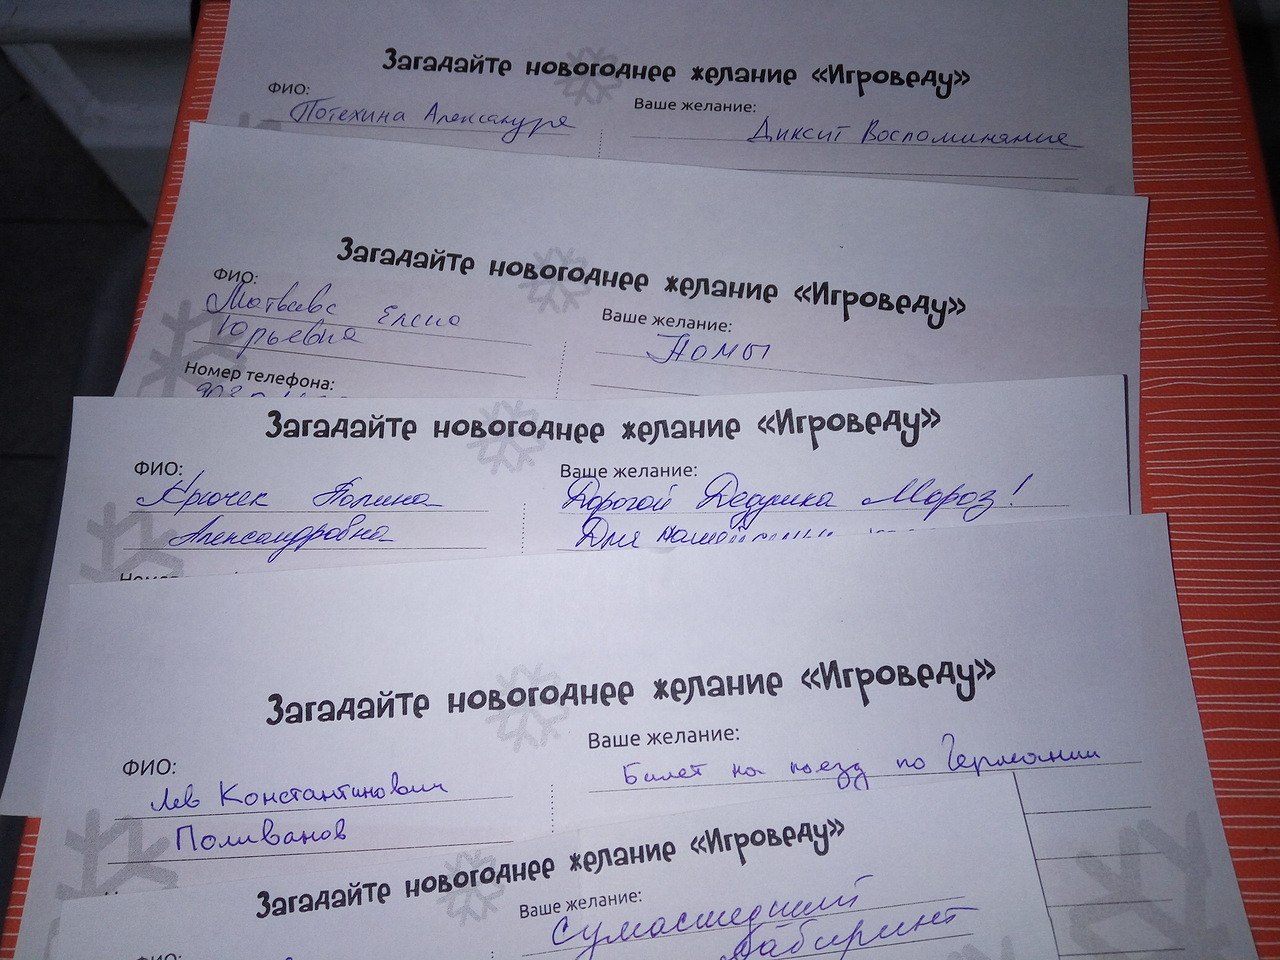 Загадайте новогоднее желание «Игроведу»
ФИО:
Потехина Александра
Ваше желание:
Диксит Воспоминание
Загадайте новогоднее желание «Игроведу»
ФИО:
Елена
Юрьевна
Ваше желание:
Номер телефона:
Загадайте новогоднее желание «Игроведу»
ФИО:
Крючек Полина
Александровна
Ваше желание:
Дорогой Дедушка Мороз!
Для нашей
Загадайте новогоднее желание «Игроведу»
ФИО:
Лев Константинович
Поливанов
Ваше желание:
Билет на поезд по Германии
Загадайте новогоднее желание «Игроведу»
Ваше желание:
Сумасшедший
Лабиринт
ФИО: